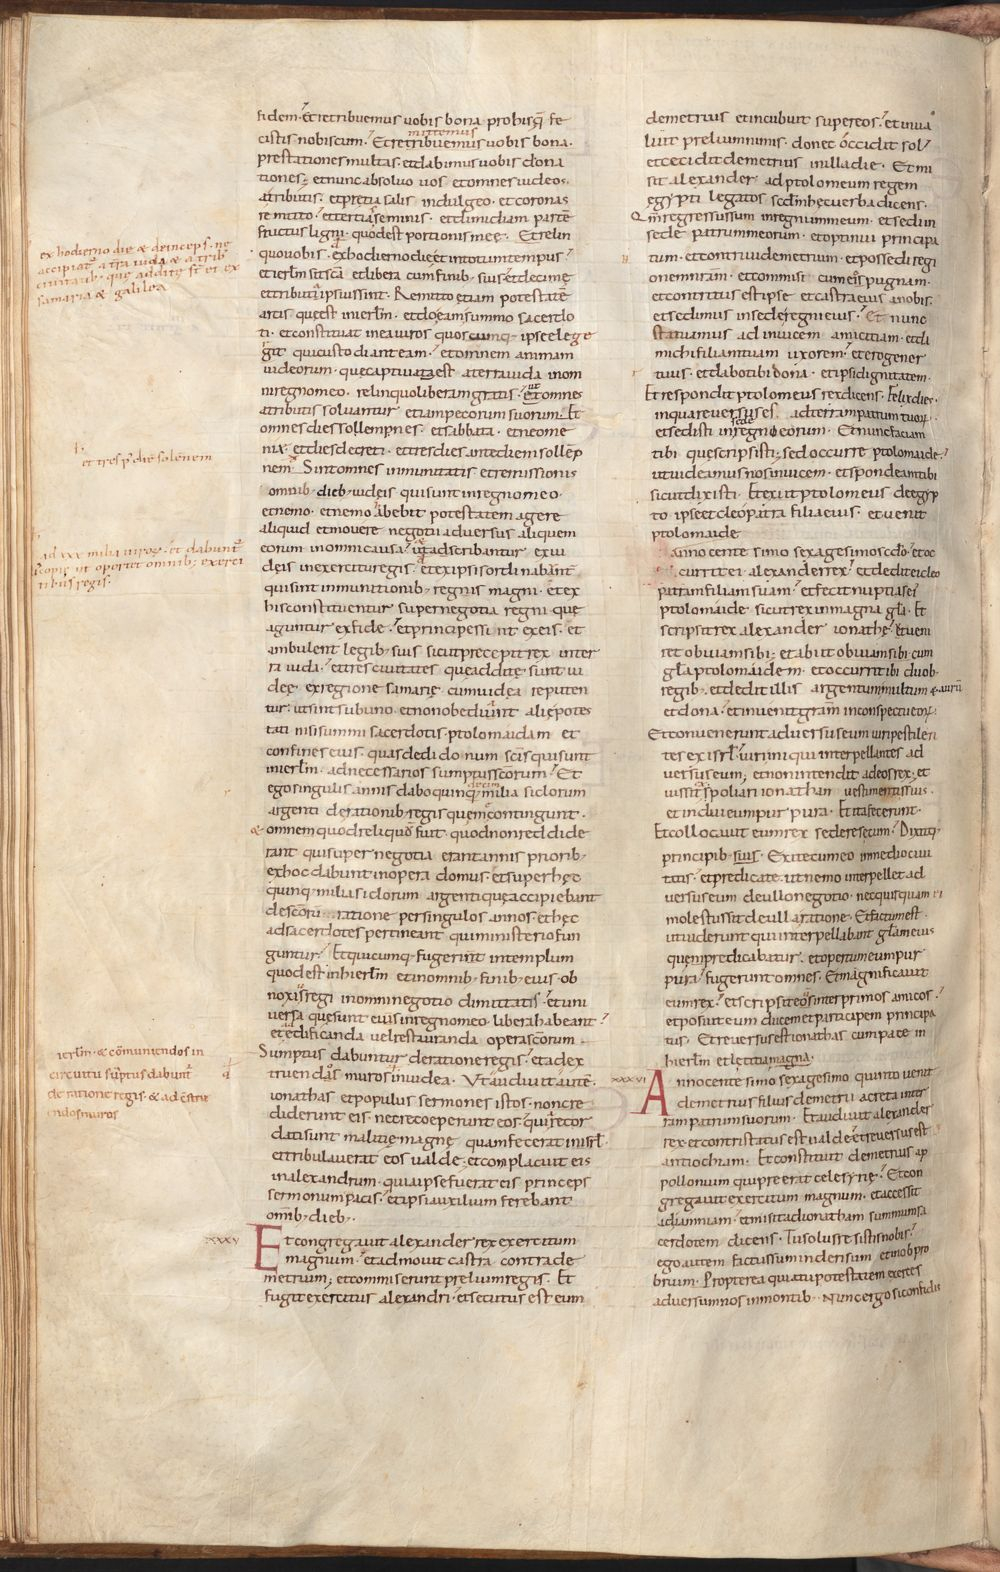 fidem· Et retribuemus uobis bona pro his q̄ fe
cistis nobiscum· Et retribuemus uobis bona·
mittemus
prestationes multas· et dabimus uobis dona
tiones; et nunc absoluo uos et omnes iudeos·
atributis· et pretia salis indulgeo· et coronas
remitto· et tertias seminis· et dimidiam partē
fructus ligni· quod est portionis meę· Et relin
quo uobis· ex hodierno die et in totum tempus·
et ierłm sit scā et libera cum finib; suis· et decimę
et tributa ipsius sint· Remitto etiam potestatē
arcis quę est in ierłm· et do eam summo sacerdo
ti· et constituat in ea uiros quoscumq· ipse elege
git qui custodiant eam· et omnem animam
iudeorum· quę captiuata est a terra iuda in om
ni regno meo· relinquo liberam gratis· ut omnes
a tributis soluantur etiam pecorum suorum· Et
omnes dies sollempnes· et sabbata· et neome
nia· et dies decreti· et tres dies ante diem sollēp
nem· Sint omnes inmunitatis et remissionis
omnib; dieb; iudeis qui sunt in regno meo·
et nemo· et nemo abebit potestatem agere
aliquid et mouere negotia aduersus aliquem
eorum in omni causa· ut adscribantur ex iu
dęis in exercitu regis· et ex ipsis ordinabānt
qui sint in munitionib; regnis magni· et ex
his constituentur super negotia regni quę
aguntur ex fide· et principes sint ex eis· et
ambulent legib; suis sicut precepit rex in ter
ra iuda· et tres ciuitates quę additę sunt iu
dęę ex regione samarię cum iudęa reputen
tur· ut sint sub uno· et non obediant alię potes
tati nisi summi sacerdotis· ptolomaidam et
confines eius· quas dedi donum scīs qui sunt
in ierłm· ad necessarios sumptus scōrum· Et
ego singulis annis dabo quinq; milia siclorum
argenti de rationib; regis quem contingunt·
& omnem quod reliquū fuit· quod non reddide
rant qui super negotia erant annis priorib;
ex hoc dabunt in opera domus· et super hęc
quinq; milia siclorum argenti quę accipiebant
de scōrū ratione per singulos annos· et hęc
ad sacerdotes pertineant qui ministerio fun
guntur· Et quicumq; fugerint in templum
quod est in hierłm et in omnib; finib; eius· ob
noxis regi in omni negotio dimittatis· et uni
uersa quę sunt eius in regno meo· libera habeant·
et ędificanda uel restauranda opera scōrum·
Sumptus dabuntur de ratione regis· et ad ex
truendas muros in iudea· Vt audiuit autē·
ionathas et populus sermones istos· non cre
diderunt eis· nec receperunt eos· quia recor
dati sunt malitię magnę quam fecerat in isrł·
et tribulauerat eos ualde· et complacuit eis
in alexandrum· quia ipse fuerat eis princeps
sermonum pacis· et ipsi auxilium ferebant
omīb; dieb;·
xxxv
Et congregauit alexander rex exercitum
magnum· et admouit castra contra de
metrium; et commiserunt prelium regis· Et
fugit exercitus alexandri· et secutus est eum
demetrius et incubuit super eos· et inua
luit prelium nimis· donec occidit sol·
et cecidit demetrius in illa die· Et mi
sit alexander ad ptolomeum regem
ęgypti legatos scdm hęc uerba dicens·
Qm̄ regressus sum in regnum meum· et sedi in
sede patrum meorum· et optinui principa
tum· et contriui demetrium· et possedi regi
onem nrām· et commisi cum eis pugnam·
et contritus est ipse et castra eius a nobis·
et sedimus in sede regni eius· Et nunc
statuamus ad inuicem amicitiam· et da
michi filiam tuam uxorem· et ero gener
tuus· et dabo tibi dona· et ipsi dignitatem·
Et respondit ptolomeus rex dicens· Felix dies·
in qua reuersus es ad terram patrum tuorꝫ·
et sedisti in sede regni eorum· Et nunc faciam
tibi quę scripsisti; sed occurre ptolomaidę·
ut uideamus nos inuicem· et spondeam tibi
sicut dixisti· Et exiit ptolomeus de egyp
to ipse et cleopatra filia eius· et uenit
ptolomaidę
anno centesimo sexagesimo scđo· et oc
currit ei alexander rex· et dedit ei cleo
patram filiam suam· et fecit nuptias ei
ptolomaide sicut rex in magna głā· Et
scripsit rex alexander ionathę· ut ueni
ret obuiam sibi; et abiit obuiam sibi cum
głā ptolomaidem· et occurrit ibi duob;
regib;· et dedit illis argentum multum & aurū
et dona· et inuenit grām in conspectu eorꝫ·
Et conuenerunt aduersus eum uiri pestilen
tes ex isrł· uiri iniqui interpellantes ad
uersus eum; et non intendit ad eos rex· et
iussit spoliari ionathan uestimentis suis·
et indui eum purpura· Et ita fecerunt·
Et collocauit eum rex sedere secum· Dixitq;
principib; suis· Exite cum eo in medio ciui
tatis· et predicate· ut nemo interpellet ad
uersus eum de ullo negotio· nec quisquam ei
molestus sit de ulla ratione· Et factum est·
ut uiderunt qui interpellabant głam eius
quę predicabatur· et opertum eum pur
pura· fugerunt omnes· Et magnificauit
eum rex· et scripsit eos inter primos amicos·
et posuit eum ducem et participem principa
tus· Et reuersus est ionathas cum pace in
hierłm et lętitia magna·
xxxvi
Anno centesimo sexagesimo quinto uenit
demetrius filius demetrii a creta in ter
ram patrum suorum· Et audiuit alexander
rex· et contristatus est ualde· et reuersus est
antiochiam· Et constituit demetrius ap
pollonium qui preerat celesyrię· Et con
gregauit exercitum magnum· et accessit
ad iamniam· et misit ad ionatham summum sa
cerdotem dicens· Tu solus resistis nobis·
ego autem factus sum in derisum et in obpro
brium· Propterea quia tu potestatem exerces
aduersum nos in montib;· Nunc ergo si confidis
ex hodierno die & deinceps· ne
accipiatꝰ a trā iuda & a trib;
ciuitatib; que additę sꝫ ei ex
samaria & galilea
et tres p̄ die solēnem
ad xxx milia uirorꝫ· et dabuntꝰ
copię ut oportet omnib; exerci
tibus regis·
ierłm· & cōmuniendos in
circuitu sūptus dabunt̄
de ratione regis· & ad exstru
endos muros